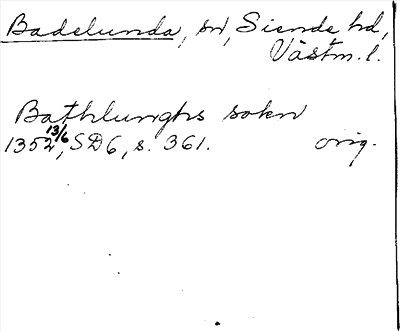 Badelunda, sn, Siende hd,
Västm. l.
Bathlunghs sokn
1352 13/6, SD6, s. 361. orig.